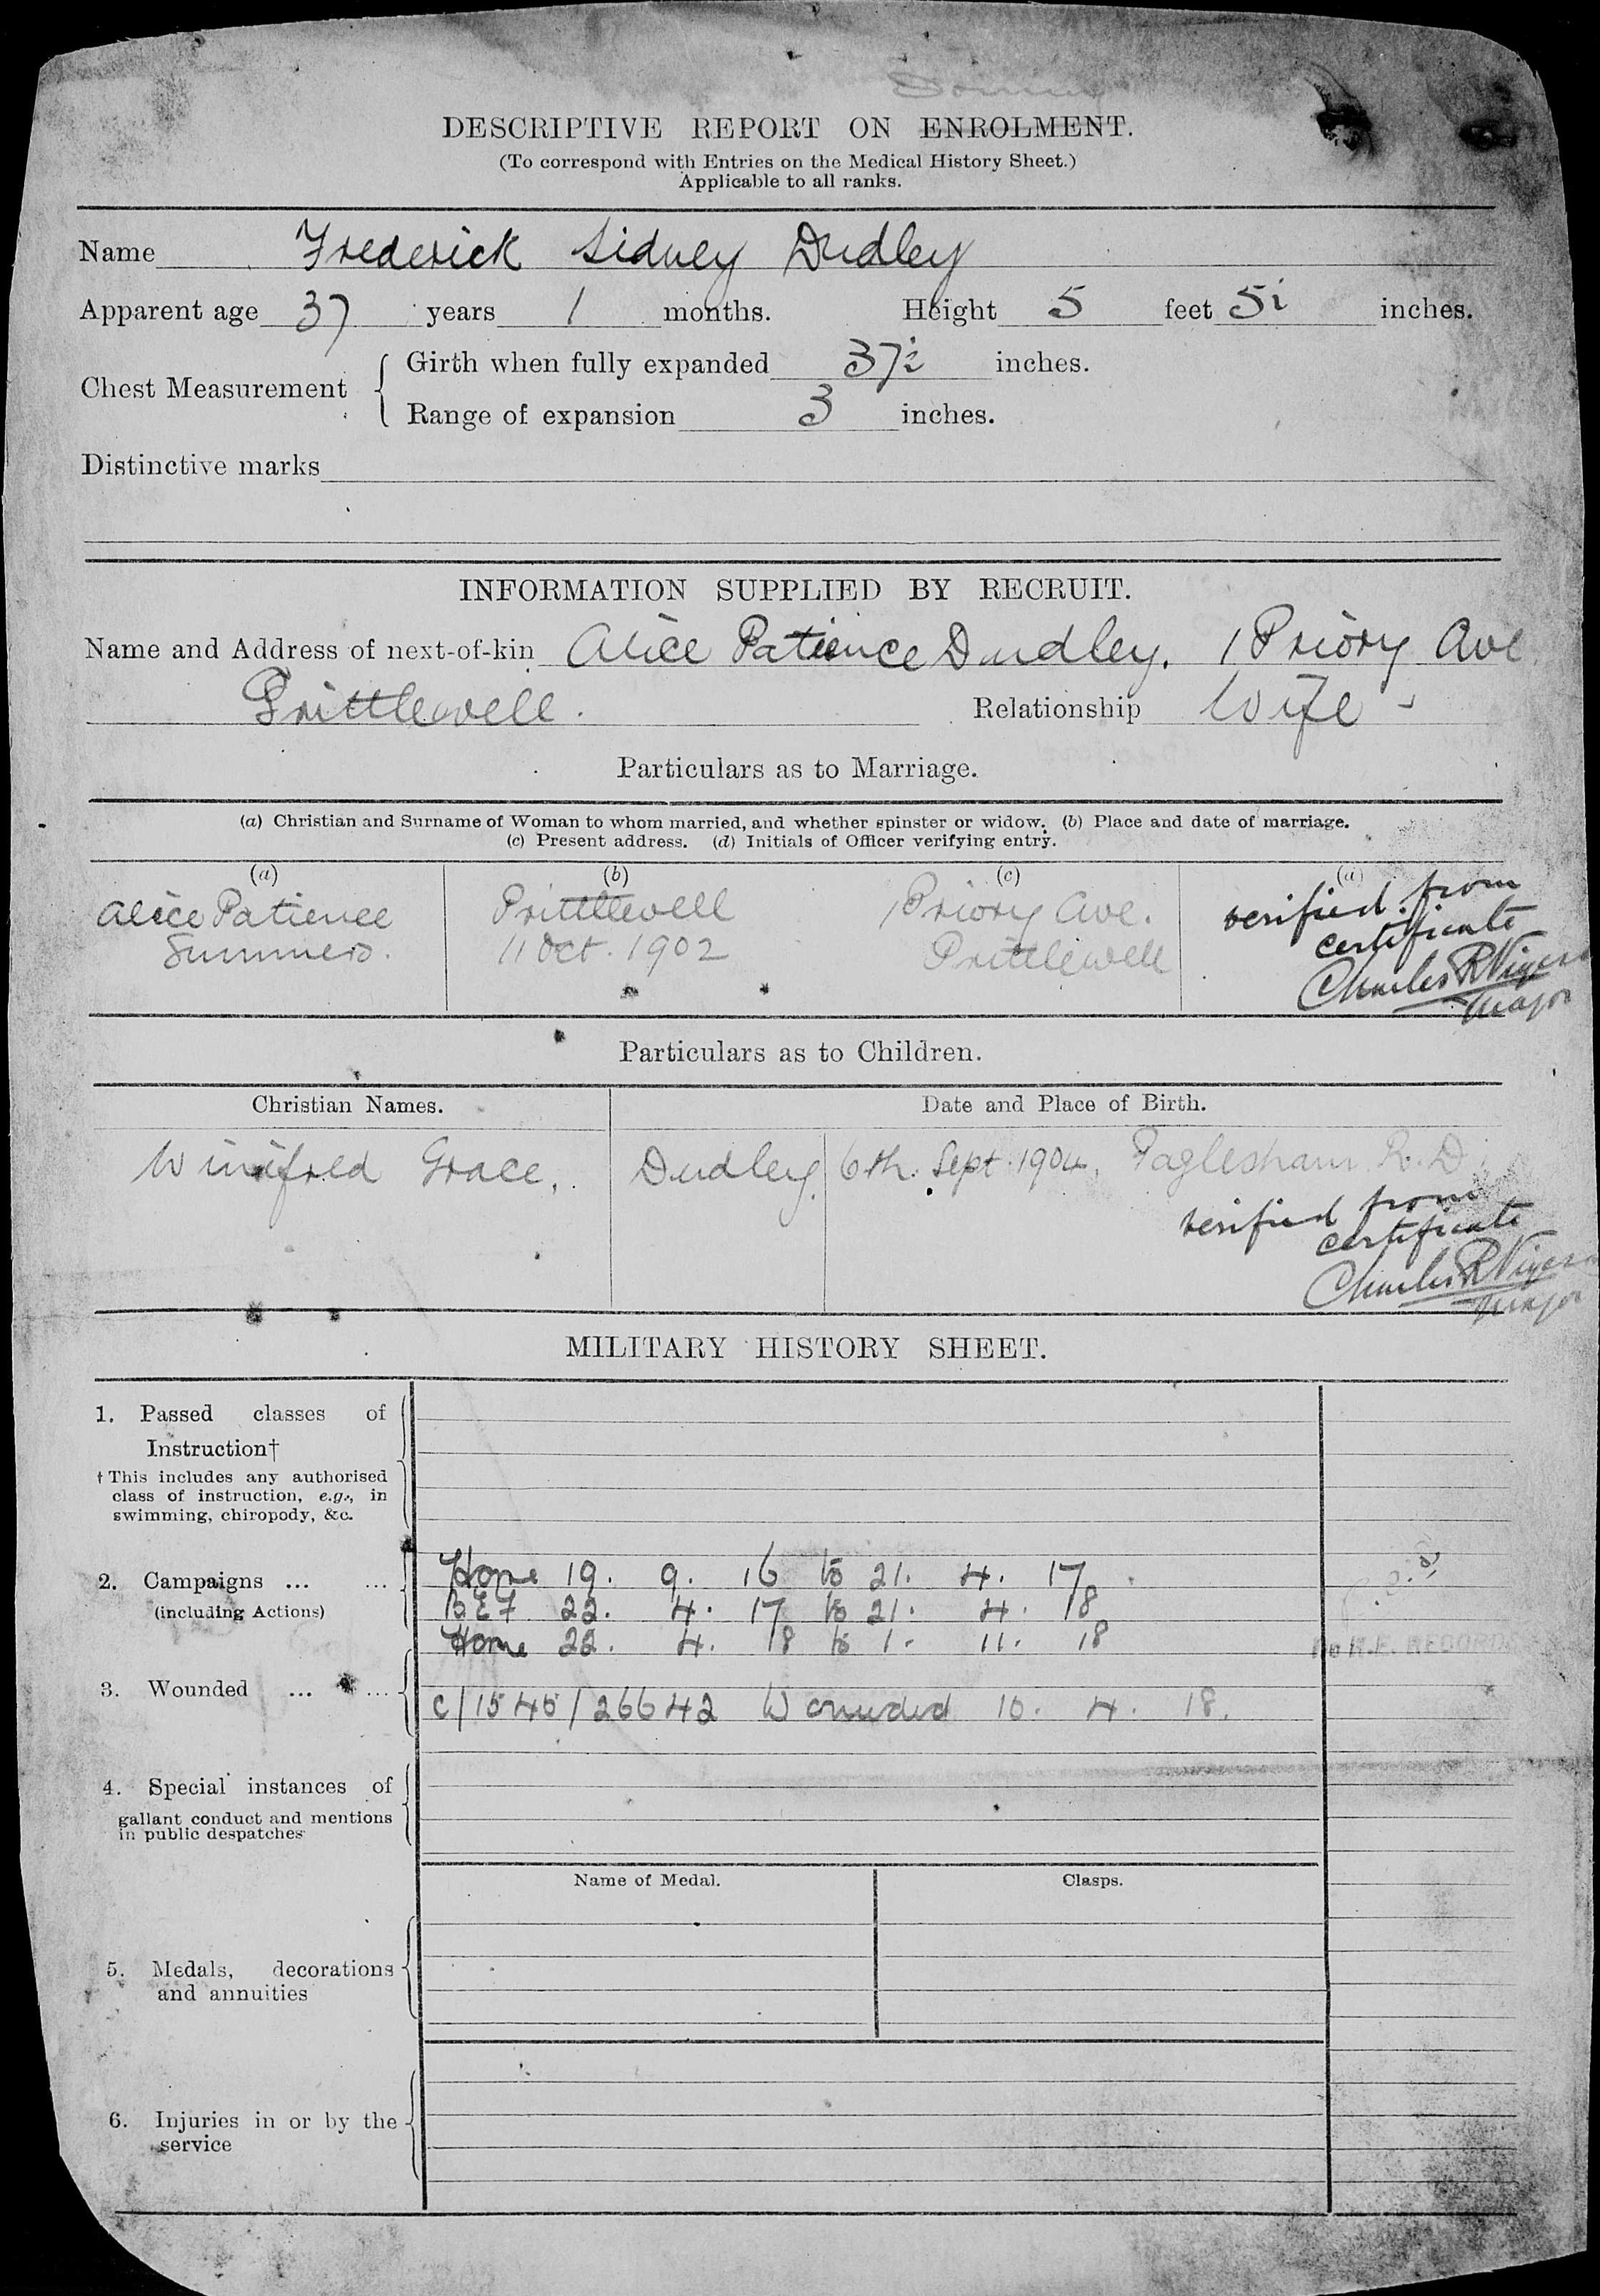 Joining
DESCRIPTIVE REPORT ON ENROLMENT.
(To correspond with Entries on the Medical History Sheet.)
Applicable to all ranks.
Name Frederick Sidney Dudley
Apparent age 37 years 1 months. Height 5 feet 5½ inches.
Chest Measurement { Girth when fully expanded 37½ inches.
Range of expansion 3 inches.
Distinctive marks
INFORMATION SUPPLIED BY RECRUIT.
Name and Address of next-of-kin Alice Patience Dudley. 1 Priory Ave
Prittlewell. Relationship Wife
Particulars as to Marriage.
(a) Christian and Surname of Woman to whom married, and whether spinster or widow. (b) Place and date of marriage.
(c) Present address. (d) Initials of Officer verifying entry.
(a) (b) (c) (d)
Alice Patience Prittlewell 1 Priory Ave. verified from
Summers. 11 Oct. 1902 Prittlewell certificate
Charles R
Major
Particulars as to Children.
Christian Names. Date and Place of Birth.
Winifred Grace, Dudley. 6th. Sept. 1904, Paglesham R.D.
verified from
certificate
Charles R
Major
MILITARY HISTORY SHEET.
1. Passed classes of
Instruction†
† This includes any authorised
class of instruction, e.g., in
swimming, chiropody, &c.
2. Campaigns ... ... Home 19. 9. 16 to 21. 4. 17
(including Actions) BEF 22. 4. 17 to 21. 4. 18
Home 22. 4. 18 to 1. 11. 18 RECORDS
3. Wounded ... ... C/1545/26642 Wounded 10. 4. 18.
4. Special instances of
gallant conduct and mentions
in public despatches
Name of Medal. Clasps.
5. Medals, decorations
and annuities
6. Injuries in or by the
service